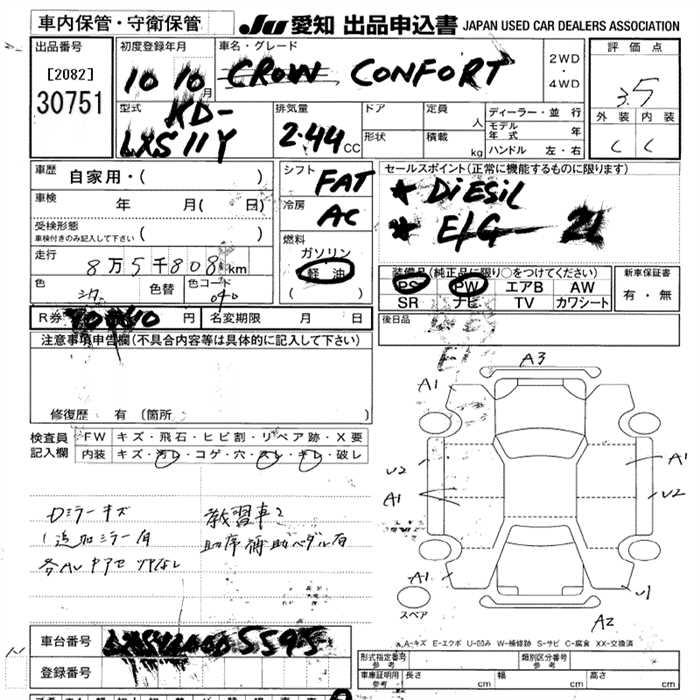 車内保管・守衛保管
JU 愛知 出品申込書 JAPAN USED CAR DEALERS ASSOCIATION
出品番号
[2082]
30751
初度登録年月
10 10 月
車名・グレード
CROW CONFORT
2WD
・
4WD
評価点
3.5
外装 内装
C C
型式
KD-
LXS11Y
排気量
2.44 CC
ドア
形状
定員
人
積載
kg
ディーラー・並行
モデル年式 年
ハンドル 左・右
車歴
自家用・( )
車検
年 月( 日)
受検形態
車検付きのみ記入して下さい ( )
走行
8万5千808km
色
色替
色コード
040
シフト
FAT
冷房
AC
燃料
ガソリン
軽油
( )
セールスポイント(正常に機能するものに限ります)
* DiESiL
* E/G
装備品(純正品に限り○をつけてください)
PS PW エアB AW
SR ナビ TV カワシート
新車保証書
有・無
R券
円
名変期限 月 日
後日品
注意事項申告欄(不具合内容等は具体的に記入して下さい)
修復歴 有(箇所 )
検査員
記入欄
FW キズ・飛石・ヒビ割・リペア跡・X要
内装 キズ・汚レ・コゲ・穴・スレ・キレ・破レ
Dミラーキズ
追加ミラー有
教習車
助席補助ペダル有
A3
A1
U2
A1
A1
U2
U1
A2
スペア
A-キズ E-エクボ U-凹み W-補修跡 S-サビ C-腐食 XX-交換済
車台番号
登録番号
形式指定番号
参考
類別区分番号
参考
車庫証明用
参考
長さ cm 幅 cm 高さ cm